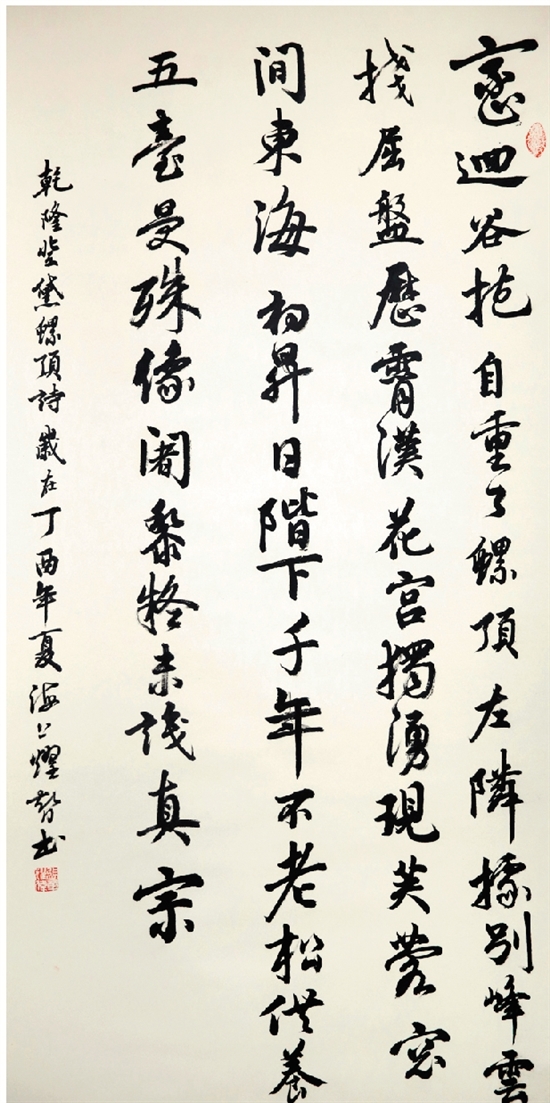 巒迴谷抱自重々螺頂左隣據別峰雲
棧屈盤歷霄漢花宮獨湧現芙蓉窓
間東海初昇日階下千年不老松供養
五臺曼殊像闍黎疑未識真宗
乾隆登黛螺頂詩歲在丁酉年夏海公燿智書